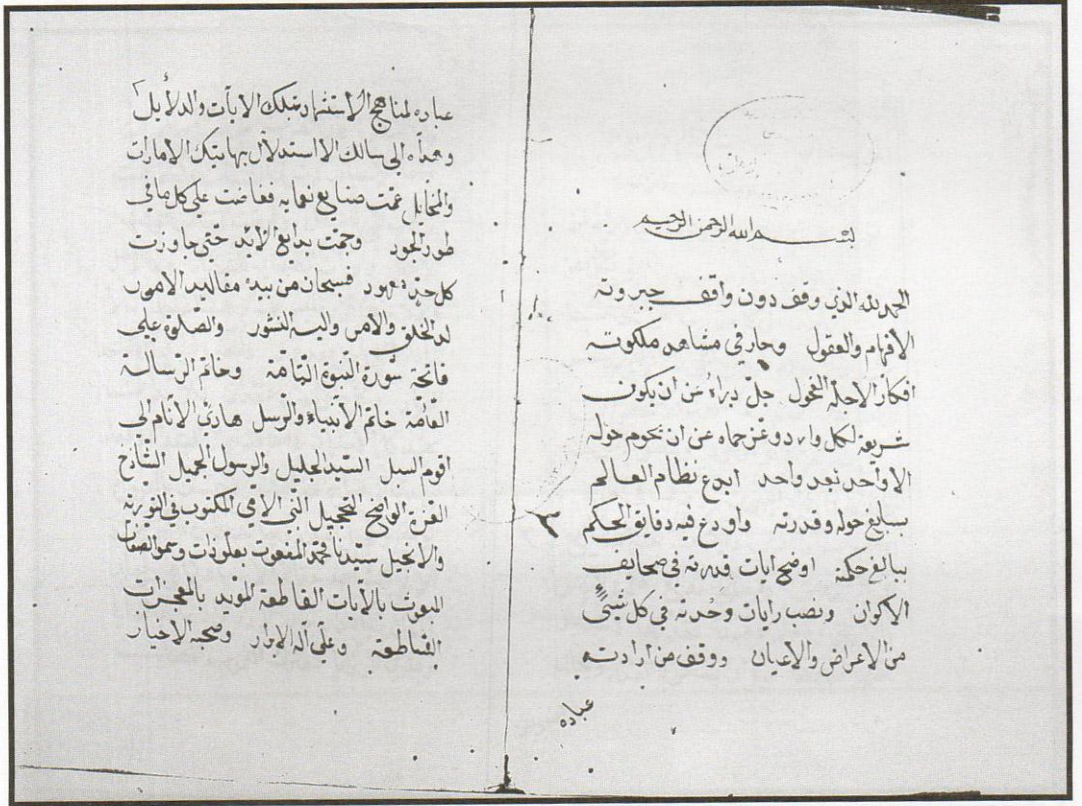 بسم الله الرحمن الرحيم
الحمد لله الذي وقف دون واقف جبروته
الأفهام والعقول وحار في مشاهد ملكوته
افكار الاجلة الفحول جل عن ان يكون
شريعة لكل وارد وعز حماه عن ان يحوم حوله
الا واحد بعد واحد ابدع نظام العالم
بسابغ حوله وقدرته واودع فيه دقايق الحكم
ببالغ حكمة اوضح ايات قدرته في صحايف
الاكوان ونصب رايات وحدته في كل شيئ
من الاعراض والاعيان ووقف من ارادته
عباده
عباده لمناهج الاستشهاد بتلك الايات والدلايل
وهداه الي سالك الاستدلال بهاتيك الامارات
والمخايل عمت صنايع نعمايه ففاضت علي كل ما في
طور الجود وجمت بدايع حتي جاوزت
كل حد معهود فسبحان من بيده مقاليد الامور
له الخلق والامر واليه النشور والصلوة علي
فاتحة سورة النبوة التامة وخاتم الرسالة
العامة خاتم الأنبياء والرسل هادي الأنام الي
اقوم السبل السيد الجليل والرسول الجميل الشادخ
الغرة الواضح التحجيل النبي الامي المكتوب في التورية
والانجيل سيدنا محمد المنعوت بعلو ذات وسمو الصفات
المبوث بالأيات القاطعة المويد بالمعجزات
القاطعة وعلي آله الابرار وصحبه الاخيار